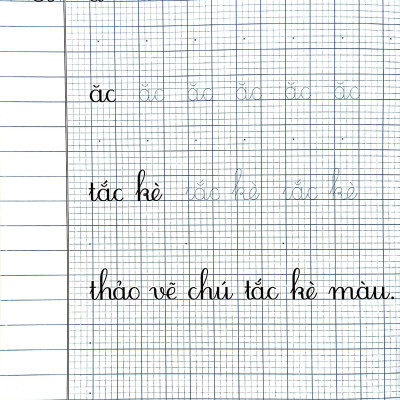 ăc ăc ăc ăc ăc ăc
tắc kè tắc kè tắc kè
thảo vẽ chú tắc kè màu.